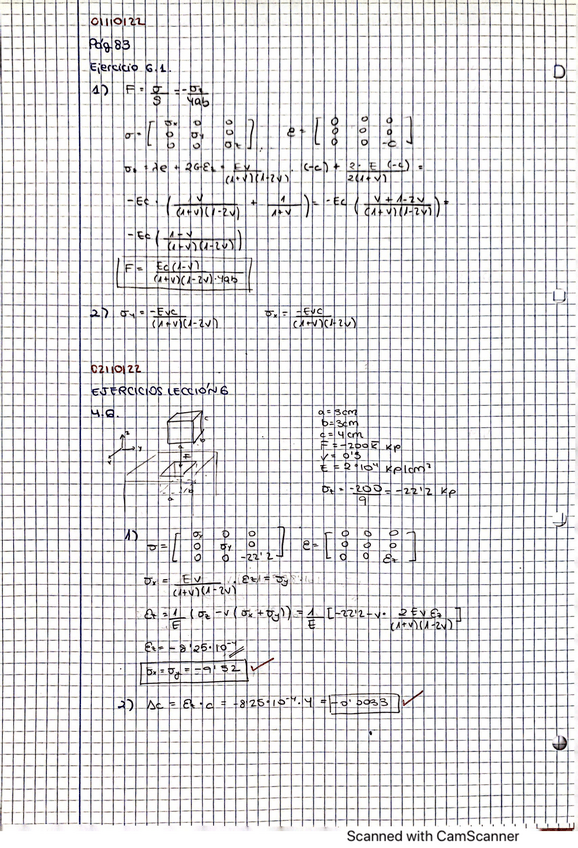 01110122
Pág 83
Ejercicio 6.1.
1) F = σ/S = -σz/4ab
σ = [σx 0 0; 0 σy 0; 0 0 σz], e = [0 0 0; 0 0 0; 0 0 -c]
σz = λe + 2Gεz = Eν/((1+ν)(1-2ν)) · (-c) + 2·E(-c)/2(1+ν) =
-Ec · (ν/((1+ν)(1-2ν)) + 1/(1+ν)) = -Ec (ν+1-2ν/((1+ν)(1-2ν))) =
-Ec (1-ν/((1+ν)(1-2ν)))
F = Ec(1-ν)/((1+ν)(1-2ν)·4ab)
2) σy = -Eνc/((1+ν)(1-2ν)) σx = -Eνc/((1+ν)(1-2ν))
02110122
EJERCICIOS LECCIÓN 6
4.6.
z
y
x
c
b
a
F
b
a
a = 3cm
b = 3cm
c = 4cm
F = -200k kp
ν = 0'3
E = 2·10⁴ kp/cm²
σz = -200/9 = -22'2 kp
1) σ = [σx 0 0; 0 σy 0; 0 0 -22'2] e = [0 0 0; 0 0 0; 0 0 εz]
σx = Eν/((1+ν)(1-2ν)) · εz = σy
εz = 1/E (σz - ν(σx+σy)) = 1/E [-22'2 - ν · 2Eνεz/((1+ν)(1-2ν))]
εz = -8'25·10⁻⁴
σx = σy = -9'52
2) Δc = εz·c = -8'25·10⁻⁴·4 = -0'0033
Scanned with CamScanner